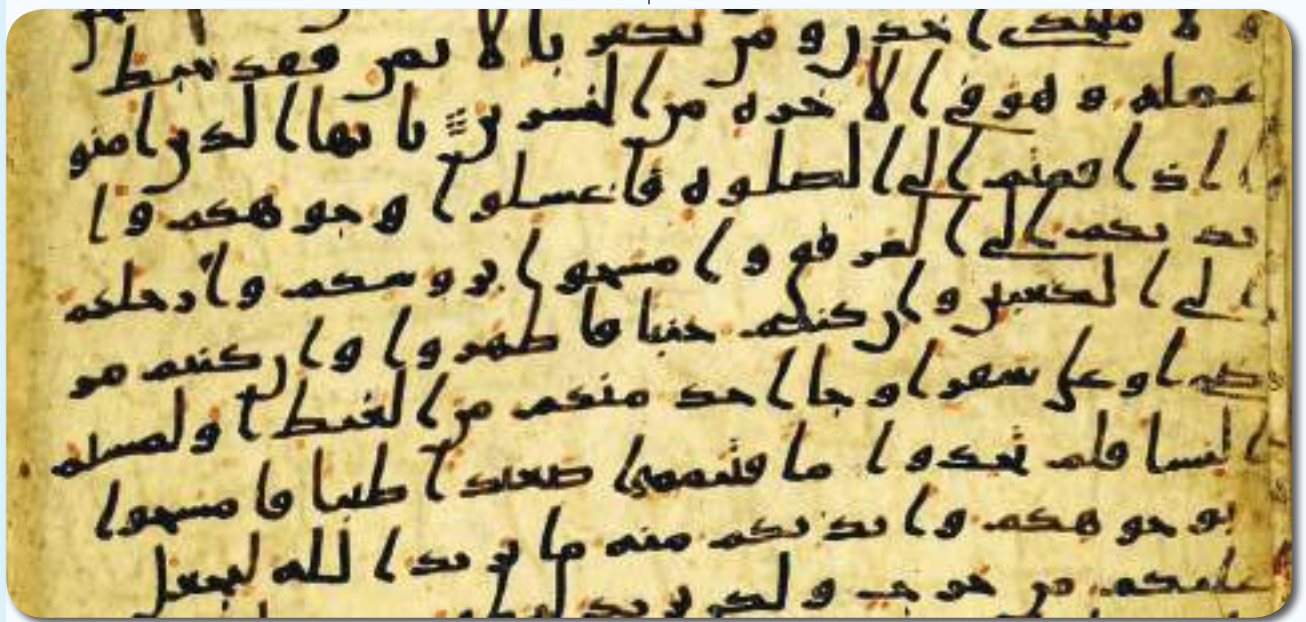 و لا متخذى اخدن و من يكفر بالايمن فقد حبط
عمله و هو فى الاخره من الخسرين يايها الذين امنو
ا اذا قمتم الى الصلوه فاغسلوا وجوهكم و ا
يديكم الى المرفق و امسحوا بروسكم و ارجلكم
الى الكعبين و ان كنتم جنبا فاطهروا و ان كنتم مر
ضى او على سفر او جا احد منكم من الغيط او لمستم
النسا فلم تجدوا ما فتيمموا صعيدا طيبا فامسحوا
بوجوهكم و ايديكم منه ما يريد الله ليجعل
عليكم من حرج و لكن يريد